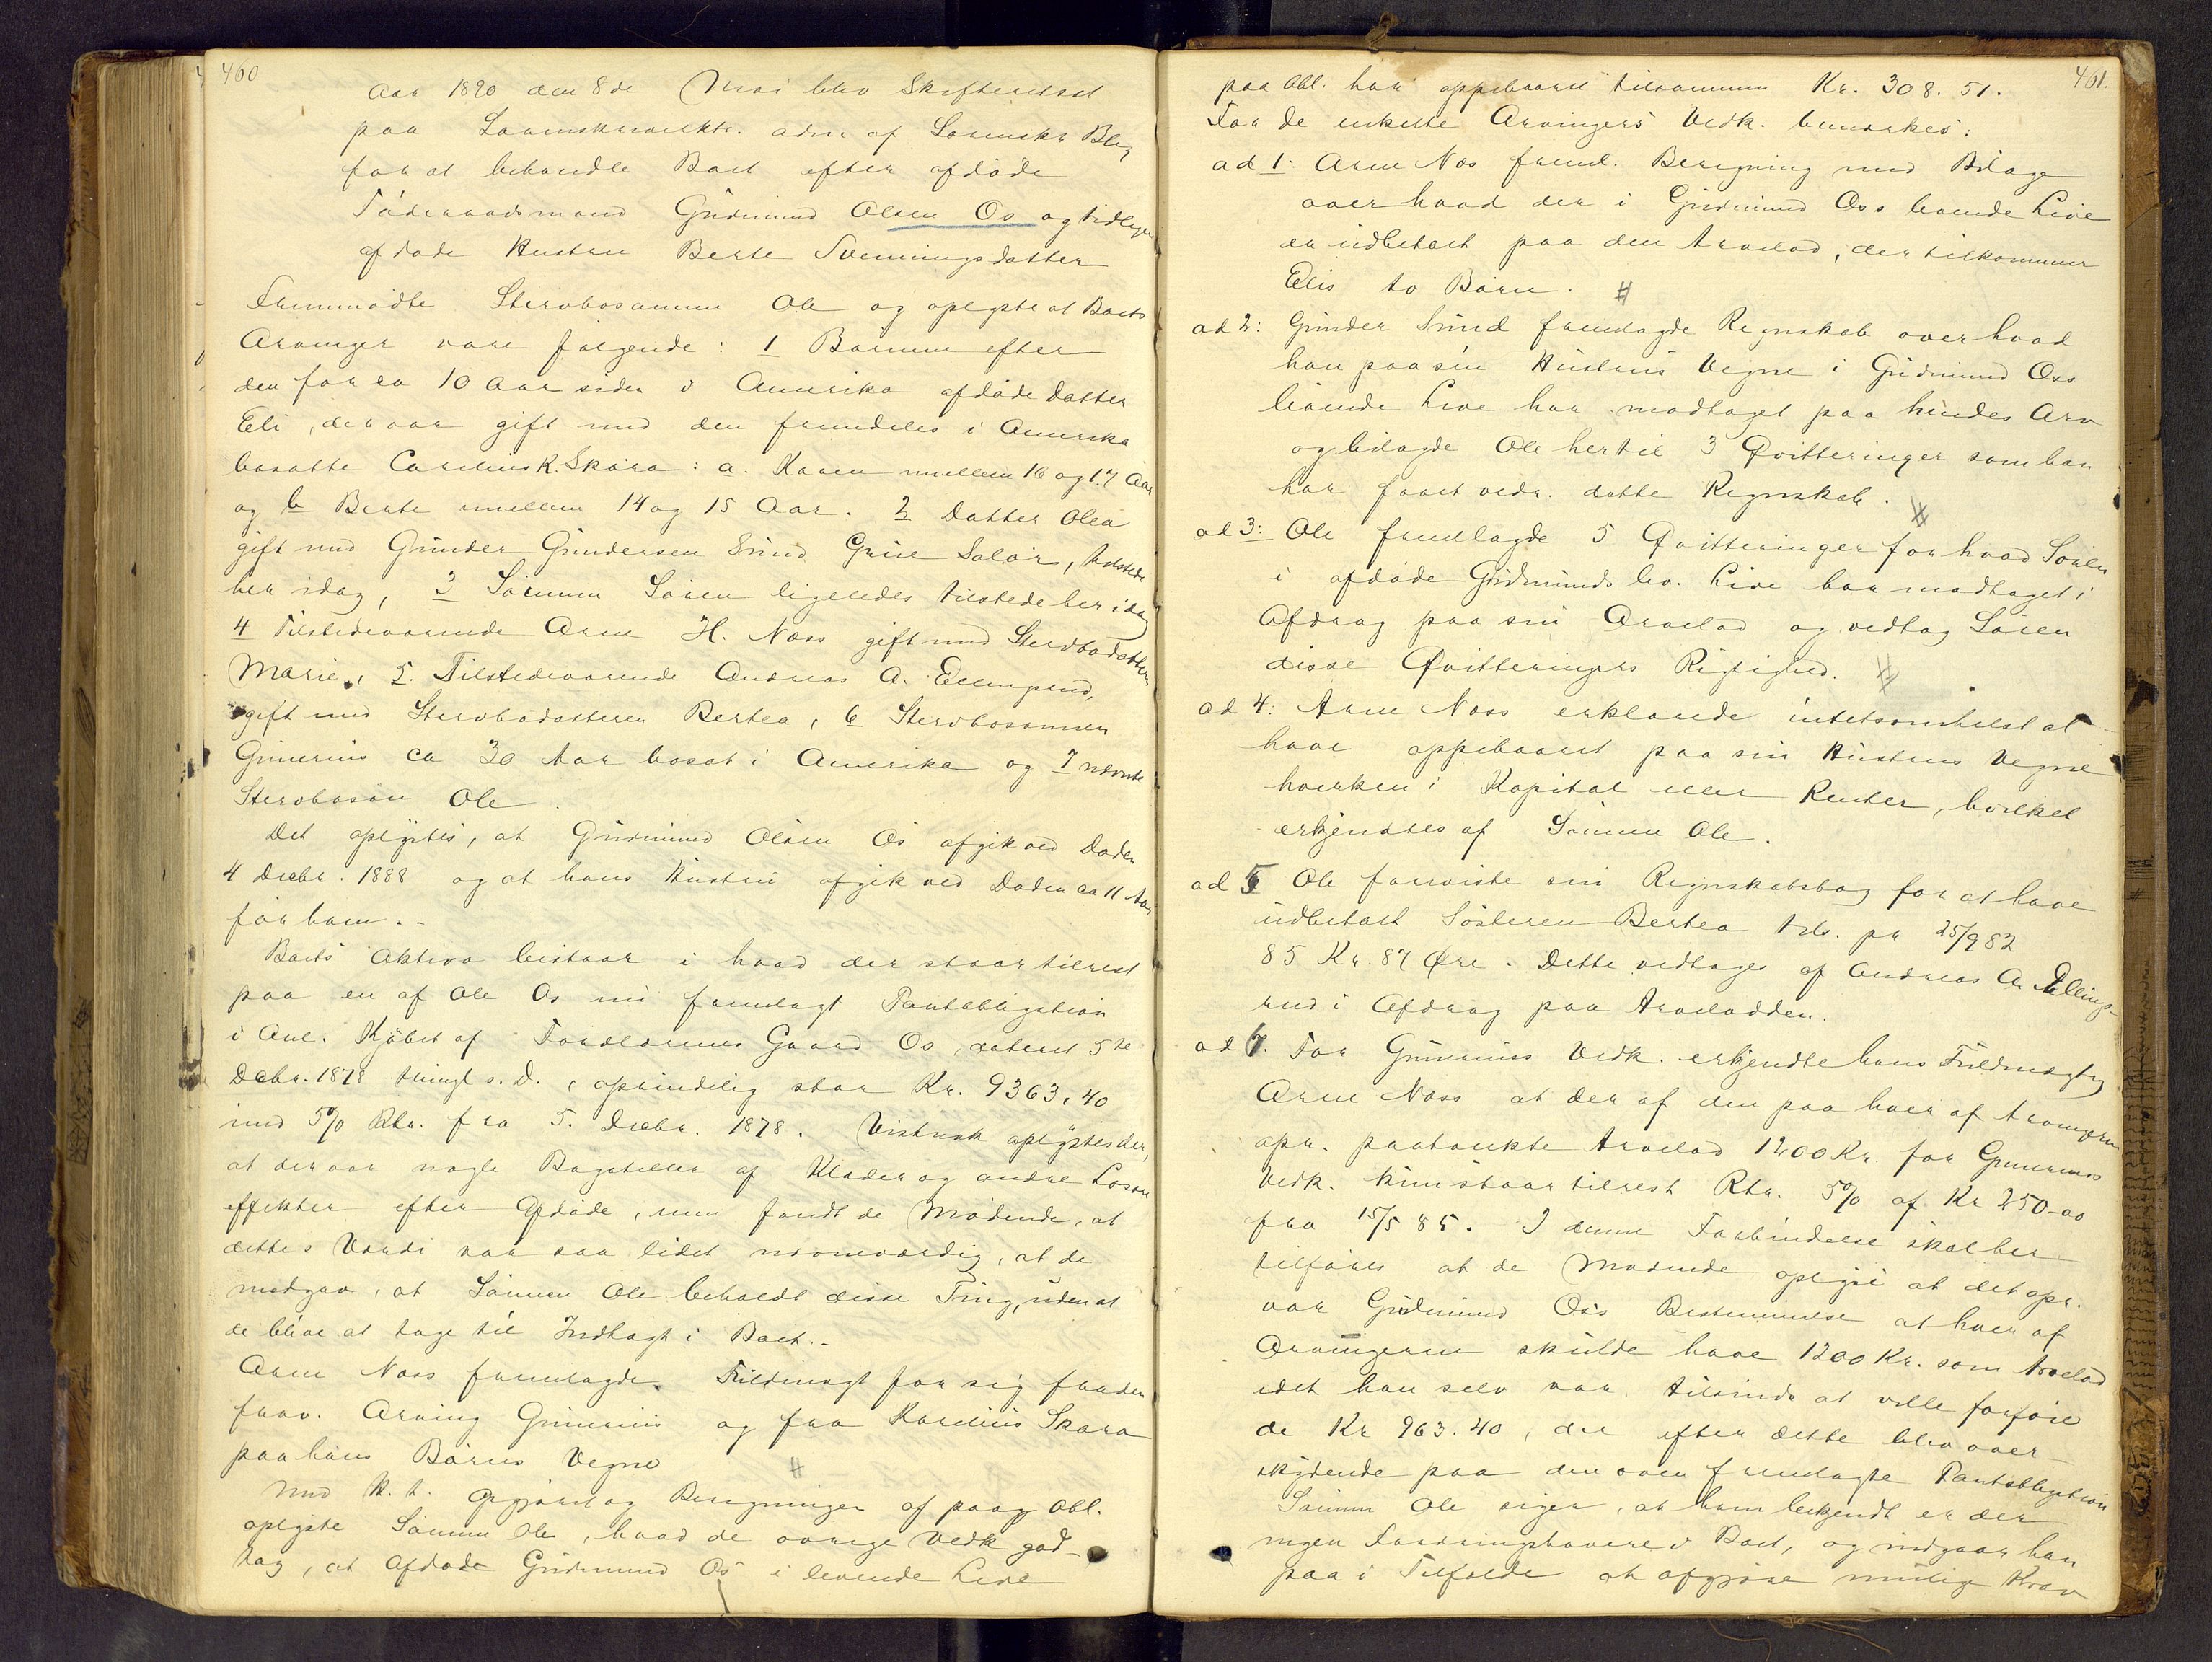 460
Aar 1890 den 8de Mai blev Skifteretset
paa Lensmandskr. adm af Lensmand
for at behandle Boet efter afdöde
Föderaadsmand Gudmund Olsen Os og tidligere
afdöde Hustru Berte Svenningsdatter
Fremmödte Stervbosönnen Ole og oplyste at Boets
Arvinger vare fölgende: 1 Börnene efter
den for ca 10 Aar siden i Amerika afdöde Datter
Eli, der var gift med den fremdeles i Amerika
bosatte Carelius K. Skåra: a. Karen mellem 16 og 17 Aar
og b Berte mellem 14 og 15 Aar. 2 Datter Olea
gift med Gunder Gundersen Sund Grue Solör, tilstede
her idag, 3 Sönnen Sören ligeledes tilstede her idag
4 Tilstedeværende Arne H. Næss gift med Stervbodatteren
Marie, 5. Tilstedeværende Andreas A. Ellingsrud,
gift med Stervbodatteren Bertea, 6 Stervbosönnen
Gunerius ca 30 Aar bosat i Amerika og 7 nævnte
Stervbosön Ole.
Det oplystes, at Gudmund Olsen Os afgik ved Döden
4 Decbr. 1888 og at hans Hustru afgik ved Döden ca 11 Aar
för ham.-
Boets Aktiva bestaar i hvad der staar tilrest
paa en af Ole Os nu fremlagt Pantobligation
i Anl. Kjöbet af Forældrenes Gaard Os, dateret 5te
Decbr. 1878 thingl s. D., oprindelig stor Kr. 9363,40
med 5% Rtr. fra 5. Decbr. 1878. Vistnok oplystes der,
at der var nogle Bagateller af Klæder og andre Lösöre
effekter efter Afdöde, men fandt de Mödende, at
dettes Værdi var saa lidet nævneværdig, at de
medgav, at Sönnen Ole beholdt disse Ting, uden at
de blive at tage til Indtægt i Boet.-
Arne Næss fremlagde Fuldmagt for sig fra den
frav. Arving Gunerius og fra Karelius Skara
paa hans Börns Vegne #
Med H. t. Opgjöret og Beregningen af paag Obl.
oplyste Sönnen Ole, hvad de övrige Vedk god-
tog, at Afdöde Gudmund Os i levende Live
461.
paa Obl. har oppebaaret tilsammen Kr. 308.51.
For de enkelte Arvingers Vedk. bemærkes:
ad 1: Arne Næs freml. Beregning med Bilage
over hvad der i Gudmund Os's levende Live
er udbetalt paa den Arvelod, der tilkommer
Elis to Börn. #
ad 2: Gunder Sund fremlagde Regnskab over hvad
han paa sin Hustrus Vegne i Gudmund Oss
levende Live har modtaget paa hendes Arv
og bilagde Ole hertil 3 Qvitteringer som han
har faaet vedr. dette Regnskab. #
ad 3: Ole fremlagde 5 Qvitteringer for hvad Sören
i afdöde Gudmunds lev. Live har modtaget i
Afdrag paa sin Arvelod og vedtog Sören
disse Qvitteringers Rigtighed. #
ad 4: Arne Næss erklærede intetsomhelst at
have oppebaaret paa sin Hustrus Vegne
hverken i Kapital eller Renter, hvilket
erkjendtes af Sönnen Ole.
ad 5 Ole foreviste sin Regnskabsbog for at have
udbetalt Sösteren Bertea tils. pr 25/9 82
85 Kr. 87 Øre. Dette vedtages af Andreas A. Ellings-
rud i Afdrag paa Arvelodden.
ad 6. For Gunerius Vedk. erkjendte hans Fuldmægtig
Arne Næss at der af den paa hver af Arvingerne
opr. paatænkte Arvelod 1200 Kr. for Gunerius
Vedk. kun staar tilrest Rtr. 5% af Kr 250-00
fra 15/5 85. I denne Forbindelse skal her
tilföies at de Mödende oplyse at det opr.
var Gudmund Os's Bestemmelse at hver af
Arvingerne skulde have 1200 Kr. som Arvelod
idet han selv var tilsinds at ville forföie
de Kr 963.40, der efter dette blev over-
skydende paa den oven fremlagte Pantobligation
Sönnen Ole siger, at ham bekjendt er der
ingen Fordringshavere i Boet, og indgaar han
paa i Tilfælde at afgjöre mulige Krav